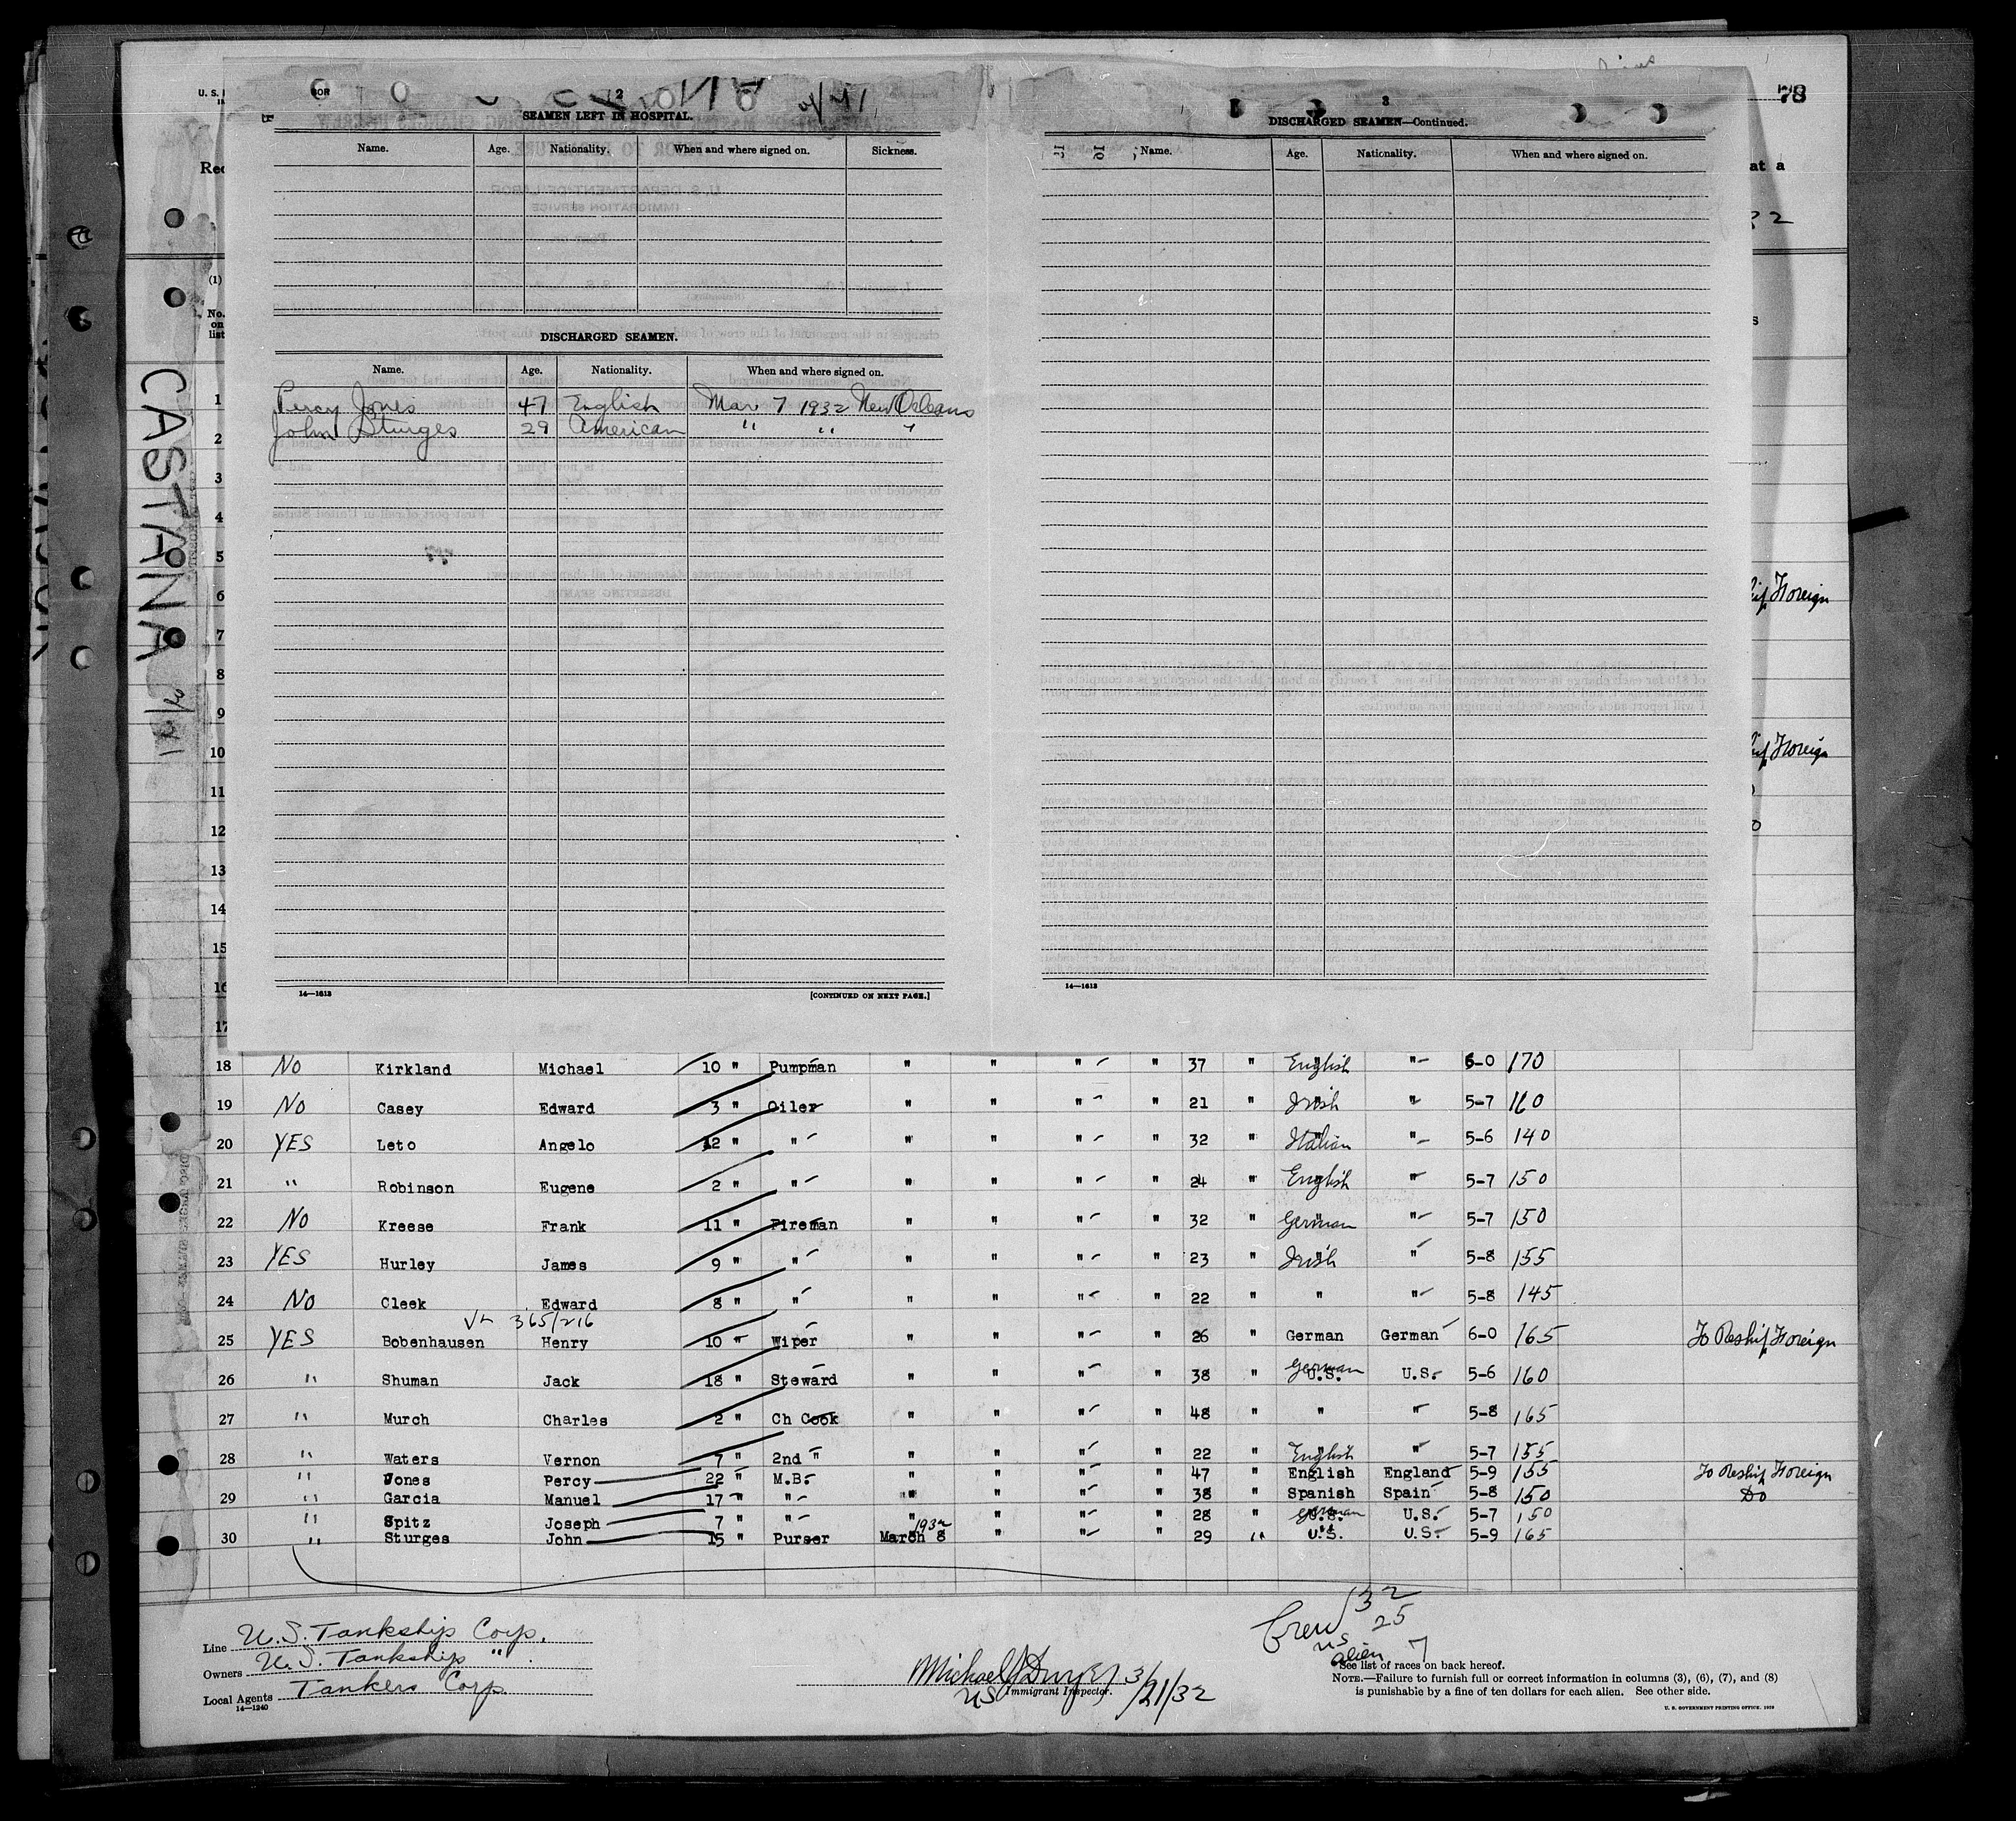 U. S.
78
2
SEAMEN LEFT IN HOSPITAL.
Name. Age. Nationality. When and where signed on. Sickness.
3
DISCHARGED SEAMEN—Continued.
Name. Age. Nationality. When and where signed on.
at a
(1)
No. on list
DISCHARGED SEAMEN.
Name. Age. Nationality. When and where signed on.
Percy Jones 47 English Mar 7 1932 New Orleans
John Sturges 29 American " " "
CASTANA
1
2
3
4
5
6
7
8
9
10
11
12
13
14
15
16
17
Foreign
Foreign
14—1613 [CONTINUED ON NEXT PAGE.]
14—1613
18 No Kirkland Michael 10 " Pumpman " " " " 37 " English " 6-0 170
19 No Casey Edward 3 " Oiler " " " " 21 " Irish " 5-7 160
20 YES Leto Angelo 12 " " " " " " 32 " Italian " 5-6 140
21 " Robinson Eugene 2 " " " " " " 24 " English " 5-7 150
22 No Kreese Frank 11 " Fireman " " " " 32 " German " 5-7 150
23 YES Hurley James 9 " " " " " " 23 " Irish " 5-8 155
24 No Cleek Edward 8 " " " " " " 22 " " " 5-8 145
365/216
25 YES Bobenhausen Henry 10 " Wiper " " " " 26 " German German 6-0 165 To Reship Foreign
26 " Shuman Jack 18 " Steward " " " " 38 " German U.S. U.S. 5-6 160
27 " Murch Charles 2 " Ch Cook " " " " 48 " " " 5-8 165
28 " Waters Vernon 7 " 2nd " " " " " 22 " English " 5-7 155
" Jones Percy 22 " M.B. " " " " 47 " English England 5-9 155 To Reship Foreign
29 " Garcia Manuel 17 " " " " " " 38 " Spanish Spain 5-8 150 Do
" Spitz Joseph 7 " " " " " " 28 " German U.S. U.S. 5-7 150
30 " Sturges John 15 " Purser March 8 1932 " " " 29 " U.S. U.S. 5-9 165
Crew 32
US 25
alien 7
Line U.S. Tankship Corp.
Owners U.S. Tankship "
Local Agents Tankers Corp
14—1240
Michael J Dwyer 3/21/32
US Immigrant Inspector.
See list of races on back hereof.
NOTE.—Failure to furnish full or correct information in columns (3), (6), (7), and (8)
is punishable by a fine of ten dollars for each alien. See other side.
U. S. GOVERNMENT PRINTING OFFICE: 1929